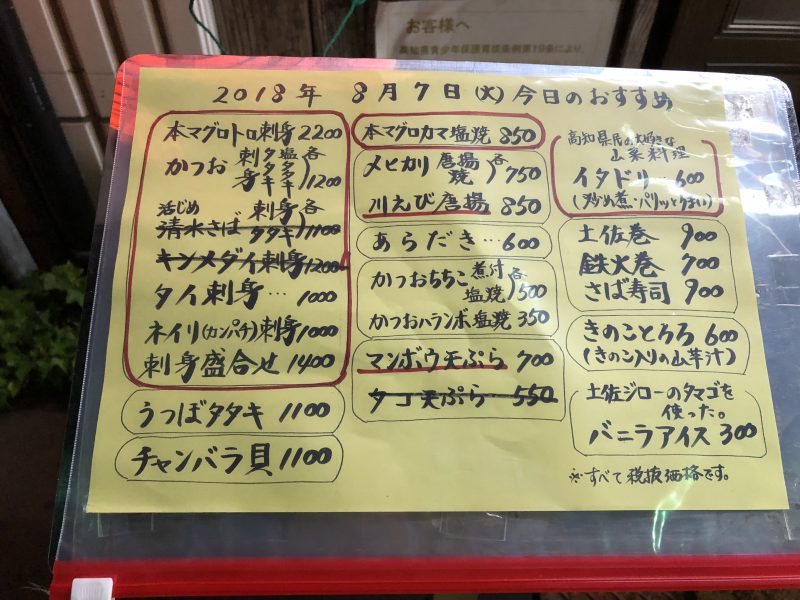 お客様へ
高知県青少年保護育成条例第19条により、
2018年 8月7日(火)今日のおすすめ
本マグロトロ刺身 2200
かつお 刺身 タタキ 塩タタキ 各1200
活じめ 清水さば 刺身 タタキ 各1100
キンメダイ刺身 1200
タイ刺身… 1000
ネイリ(カンパチ)刺身 1000
刺身盛合せ 1400
うつぼタタキ 1100
チャンバラ貝 1100
本マグロカマ塩焼 850
メヒカリ 唐揚 焼 各750
川えび唐揚 850
あらだき… 600
かつおちちこ 煮付 塩焼 各500
かつおハランボ塩焼 350
マンボウ天ぷら 700
タコ天ぷら 550
高知県民の大好きな
山菜料理
イタドリ… 600
(炒め煮・パリッとうまい)
土佐巻 900
鉄火巻 700
さば寿司 900
きのことろろ 600
(きのこ入りの山芋汁)
土佐ジローのタマゴを
使った。
バニラアイス 300
※すべて税抜価格です。